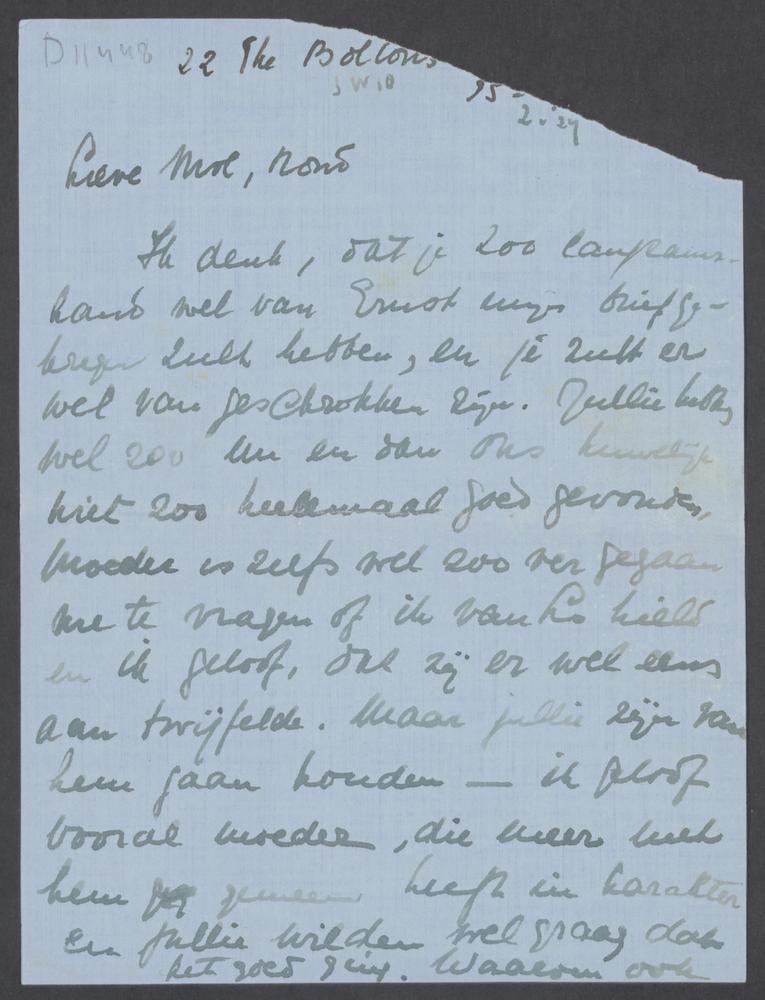 D11448 22 The Boltons
SW10 25-
2.'27
Lieve Moe, Noud
Ik denk, dat je zoo langzamer-
hand wel van Ernst mijn brief ge-
kregen zult hebben, en je zult er
wel van geschrokken zijn. Jullie hebben
wel zoo nu en dan ons huwelijk
niet zoo heelemaal goed gevonden,
Moeder is zelfs wel zoo ver gegaan
me te vragen of ik van hield
en ik geloof, dat zij er wel eens
aan twijfelde. Maar jullie zijn van
hem gaan houden — ik geloof
vooral moeder, die meer met
hem gemeen heeft in karakter
en jullie wilden wel graag dat
het goed ging. Waarom ook